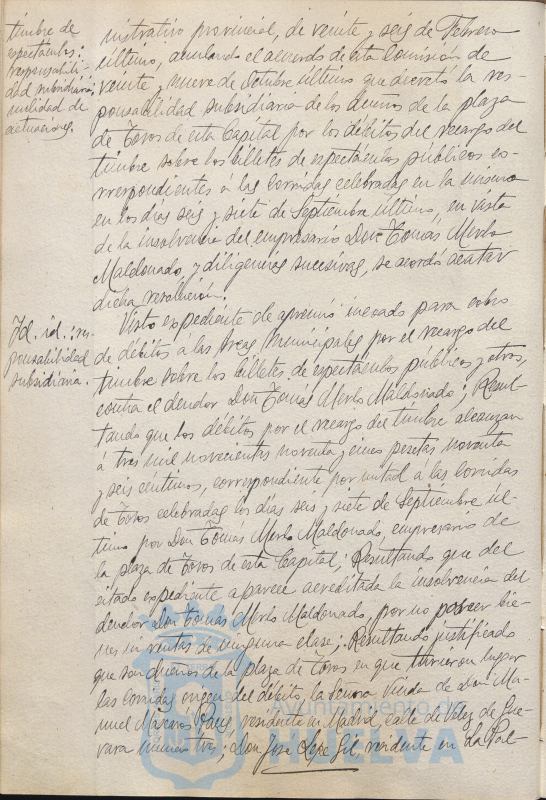 timbre de
espectáculos:
responsabili-
dad subsidiaria,
nulidad de
actuaciones.
nistrativo provincial, de veinte y seis de Febrero
último, anulando el acuerdo de esta Comisión de
veinte y nueve de Octubre último que decretó la res-
ponsabilidad subsidiaria de los dueños de la plaza
de Toros de esta Capital por los débitos del recargo del
timbre sobre los billetes de espectáculos públicos co-
rrespondientes á las corridas celebradas en la misma
en los días seis y siete de Septiembre último, en vista
de la insolvencia del empresario Don Tomás Merlo
Maldonado, y diligencias sucesivas, se acordó acatar
dicha resolución.
Id. id.: res-
ponsabilidad
subsidiaria.
Visto expediente de apremio incoado para cobro
de débitos á las arcas municipales por el recargo del
timbre sobre los billetes de espectáculos públicos y otros,
contra el deudor Don Tomás Merlo Maldonado; Resul-
tando que los débitos por el recargo del timbre alcanzan
á tres mil novecientas noventa y cinco pesetas noventa
y seis céntimos, correspondiente por mitad á las corridas
de toros celebradas los días seis y siete de Septiembre úl-
timo por Don Tomás Merlo Maldonado, empresario de
la plaza de Toros de esta Capital; Resultando que del
citado expediente aparece acreditada la insolvencia del
deudor Don Tomás Merlo Maldonado, por no poseer bie-
nes ni rentas de ninguna clase; Resultando justificado
que son dueños de la plaza de Toros en que tuvieron lugar
las corridas origen del débito, la Señora Viuda de Don Ma-
nuel residente en Madrid, calle de Vélez de Gue-
vara número tres; Don José Lepe Gil, residente en La Pal-
Ayuntamiento de
HUELVA